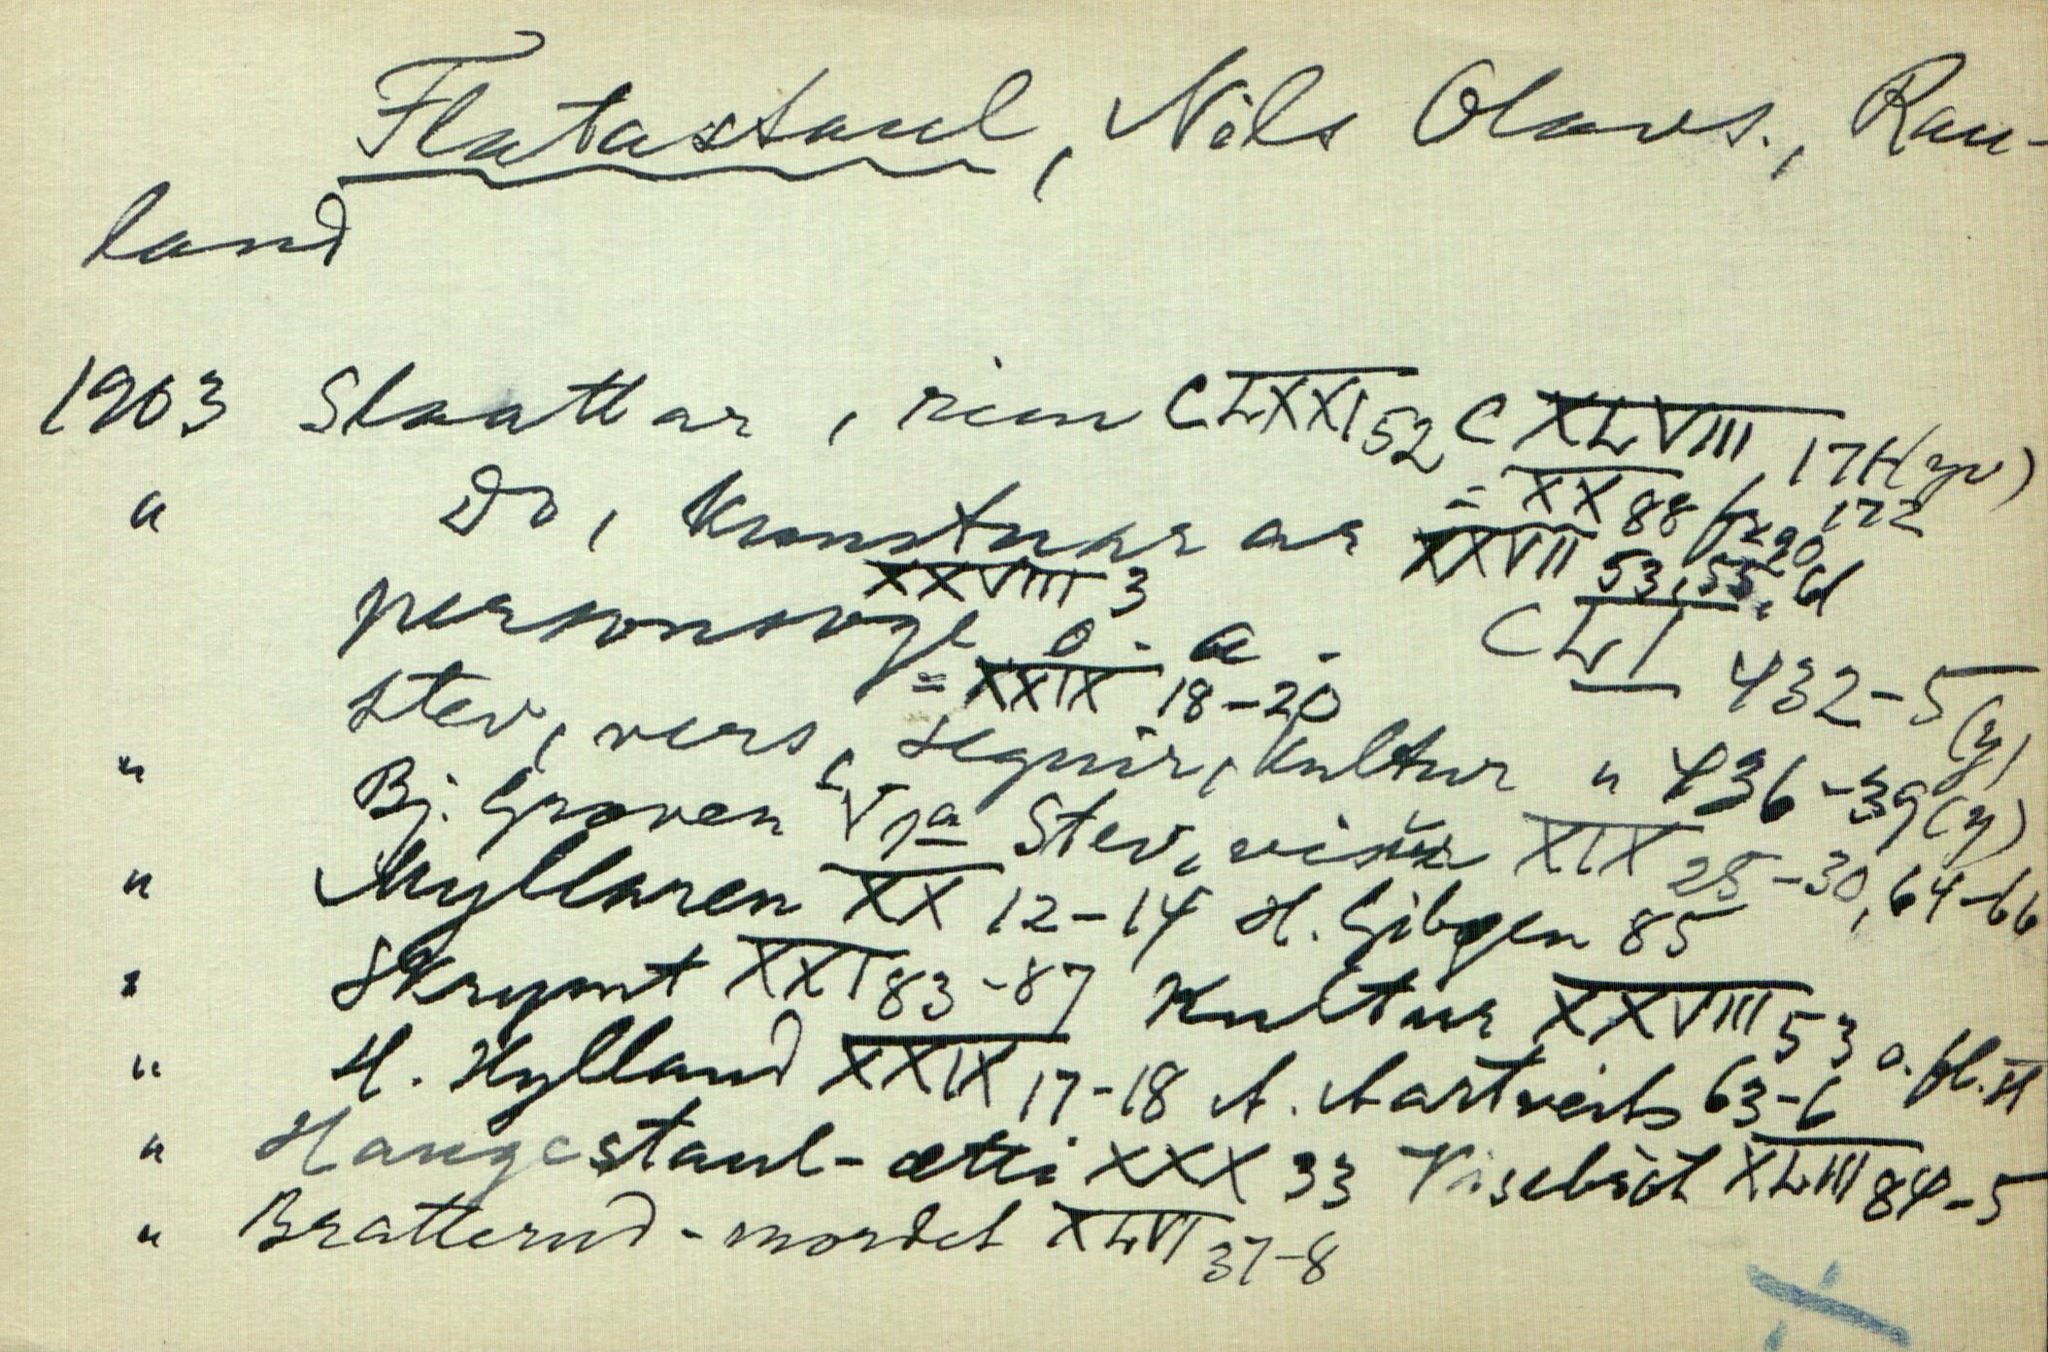 Flatastaul, Nils Olavs., Rau-
land
1903 Slaattar, rim CLXXI 52 CXLVIII 171 (yv)
= XX 88 172
" Do, kunstnarar XXVII 53, 55,
XXVIII 3
personsoge o. a. CLI 432-5 (y)
= XXIX 18-20
stev, vers, segnir, kultur " 436-39 (y)
" Bj. Groven Stev, visur XIX 25-30, 64-66
" Myllaren XX 12-14 H. Gibøen 85
" Skrymt XXI 83-87 Kultur XXVIII 53 o. fl. st
" H. Hylland XXIX 17-18 A. Aartveits 63-6
" Haugestaul-ætti XXX 33 Visebrot XLIII 84-5
" Bratterud-mordet XLVI 37-8